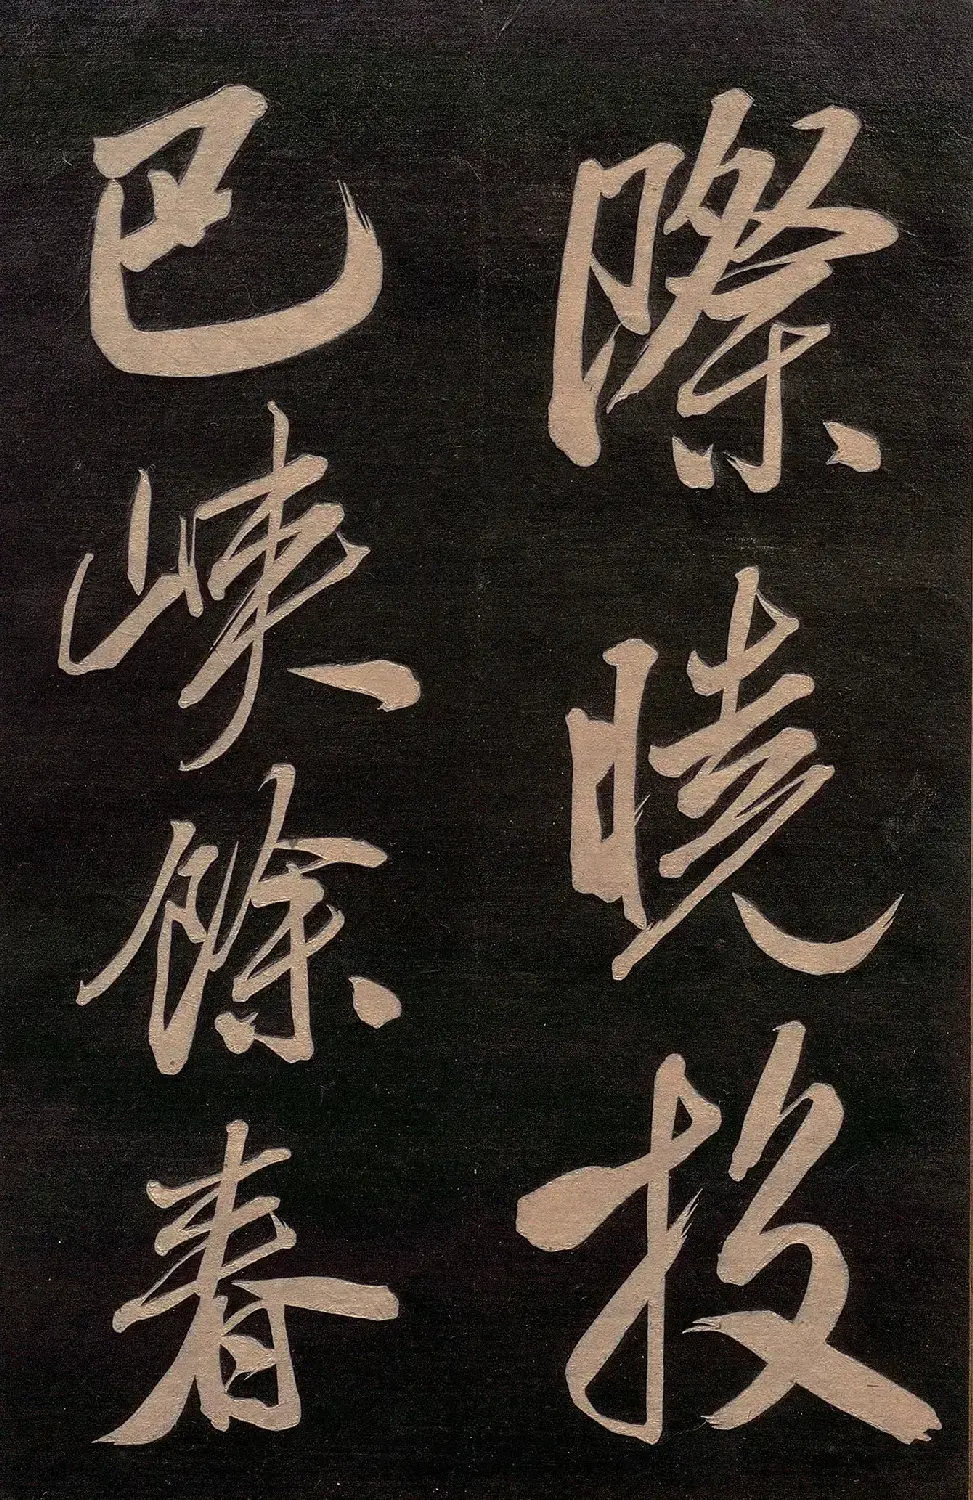 際曉投
巴峽餘春